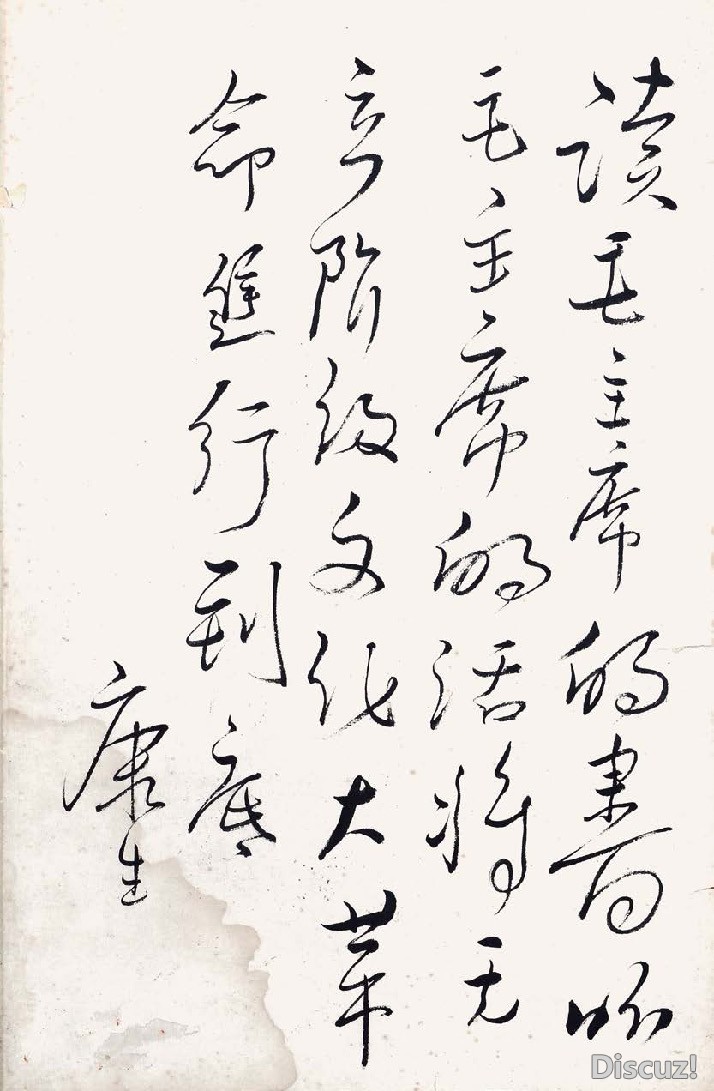 读毛主席的書听
毛主席的话将无
产阶级文化大革
命進行到底
康生
Discuz!